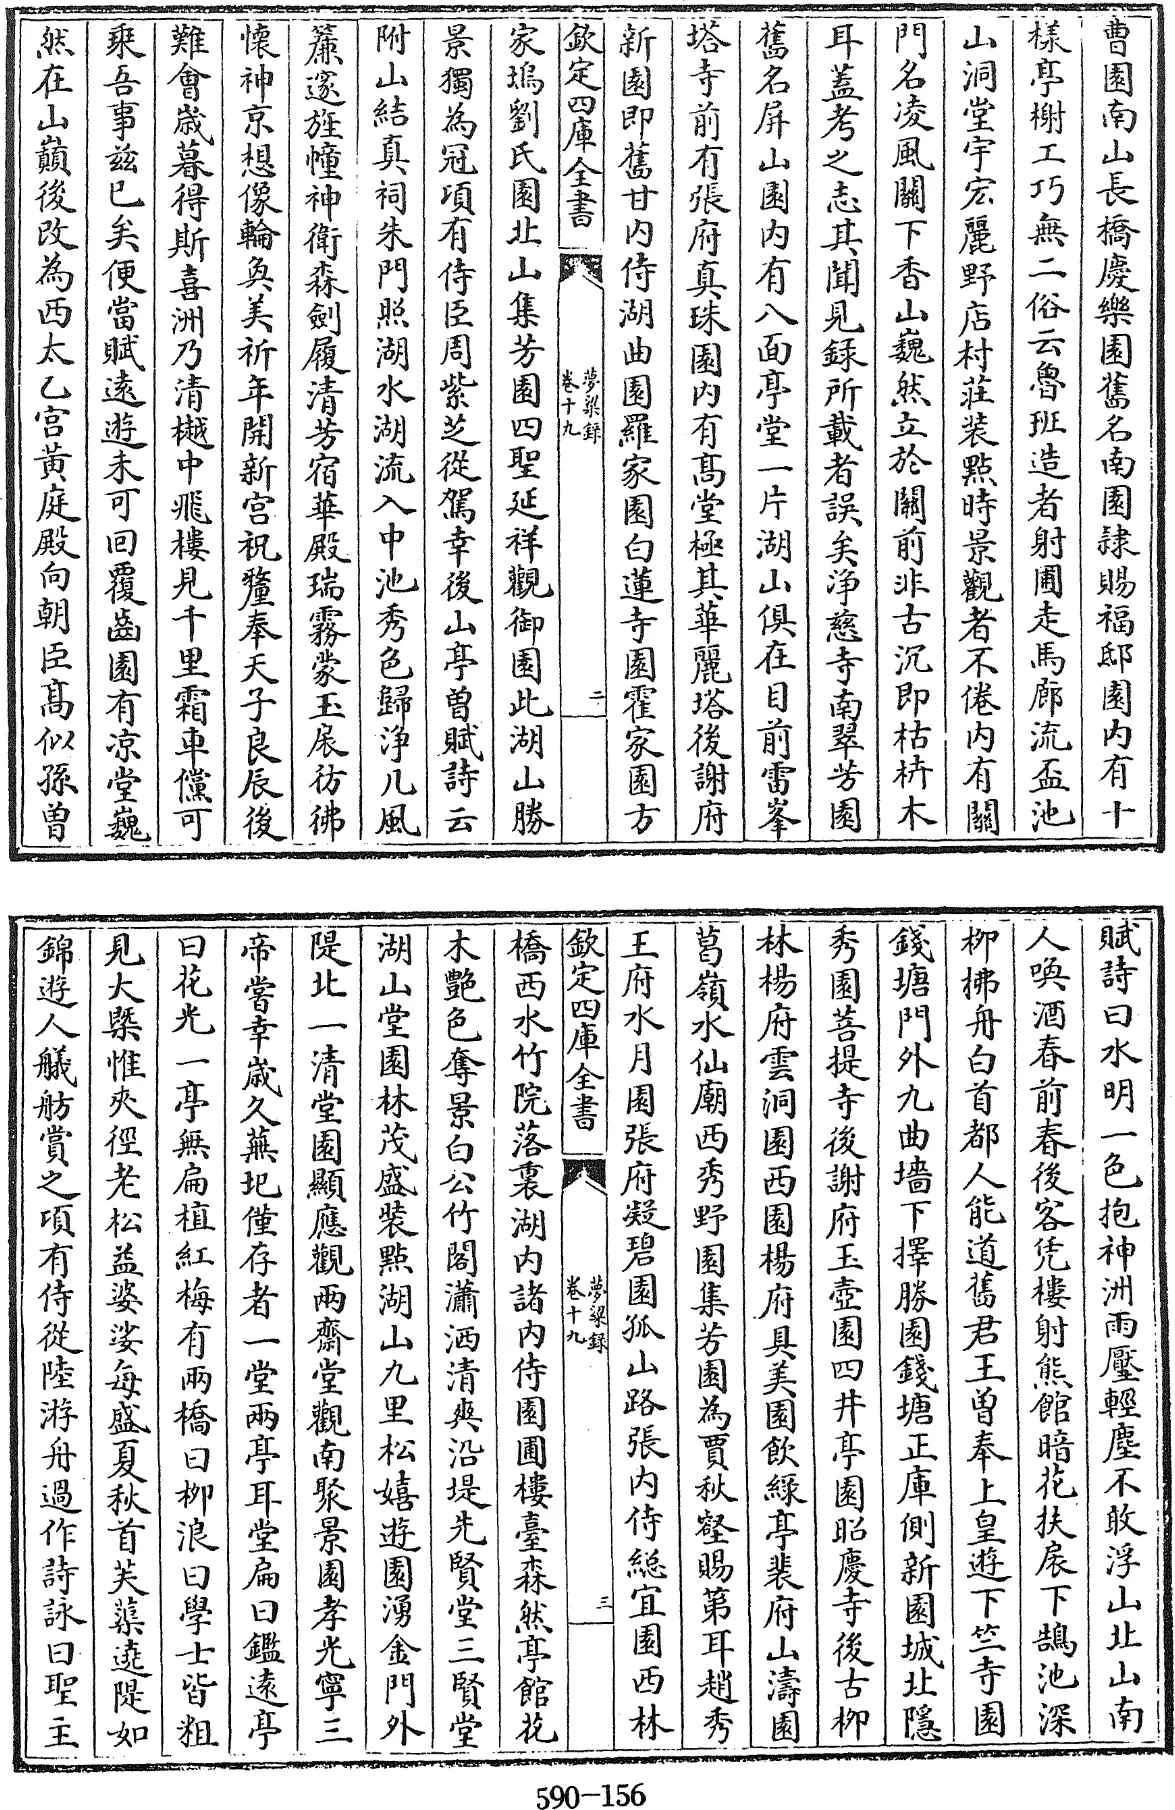 曹園南山長橋慶樂園舊名南園隷賜福邸園内有十
樣亭榭工巧無二俗云魯班造者射圃走馬廊流盃池
山洞堂宇宏麗野店村莊装點時景觀者不倦内有關
門名凌風關下香山巍然立於關前非古沉即枯枿木
耳蓋考之志其聞見録所載者誤矣浄慈寺南翠芳園
舊名屏山園内有八面亭堂一片湖山俱在目前雷峯
塔寺前有張府真珠園内有髙堂極其華麗塔後謝府
新園即舊甘内侍湖曲園羅家園白蓮寺園霍家園方
欽定四庫全書
夢粱録
卷十九
二
家塢劉氏園北山集芳園四聖延祥觀御園此湖山勝
景獨為冠項有侍臣周紫芝從駕幸後山亭曾賦詩云
附山結真祠朱門照湖水湖流入中池秀色歸浄几風
簾邃旌幢神衛森劍履清芳宿華殿瑞霧蒙玉扆彷彿
懐神京想像輪奐美祈年開新宫祝釐奉天子良辰後
難會歳暮得斯喜洲乃清樾中飛樓見千里霜車儻可
乗吾事兹已矣便當賦逺遊未可回覆齒園有凉堂巍
然在山巔後改為西太乙宫黄庭殿向朝臣髙似孫曾
賦詩曰水明一色抱神洲雨壓輕塵不敢浮山北山南
人喚酒春前春後客凭樓射熊館暗花扶扆下鵠池深
柳拂舟白首都人能道舊君王曽奉上皇遊下竺寺園
錢塘門外九曲墻下擇勝園錢塘正庫側新園城北隱
秀園菩提寺後謝府玉壺園四井亭園昭慶寺後古柳
林楊府雲洞園西園楊府具美園飲緑亭裴府山濤園
葛嶺水仙廟西秀野園集芳園為賈秋壑賜第耳趙秀
王府水月園張府凝碧園孤山路張内侍總宜園西林
欽定四庫全書
夢粱録
卷十九
三
橋西水竹院落裏湖内諸内侍園圃樓臺森然亭館花
木艷色奪景白公竹閣瀟洒清爽沿堤先賢堂三賢堂
湖山堂園林茂盛装點湖山九里松嬉遊園湧金門外
隄北一清堂園顯應觀兩齋堂觀南聚景園孝光寧三
帝嘗幸歳久蕪圮僅存者一堂兩亭耳堂扁曰鑑逺亭
曰花光一亭無扁植紅梅有兩橋曰柳浪曰學士皆粗
見大槩惟夾徑老松益婆娑每盛夏秋首芙蕖遶隄如
錦遊人艤舫賞之項有侍從陸游舟過作詩詠曰聖主
590-156